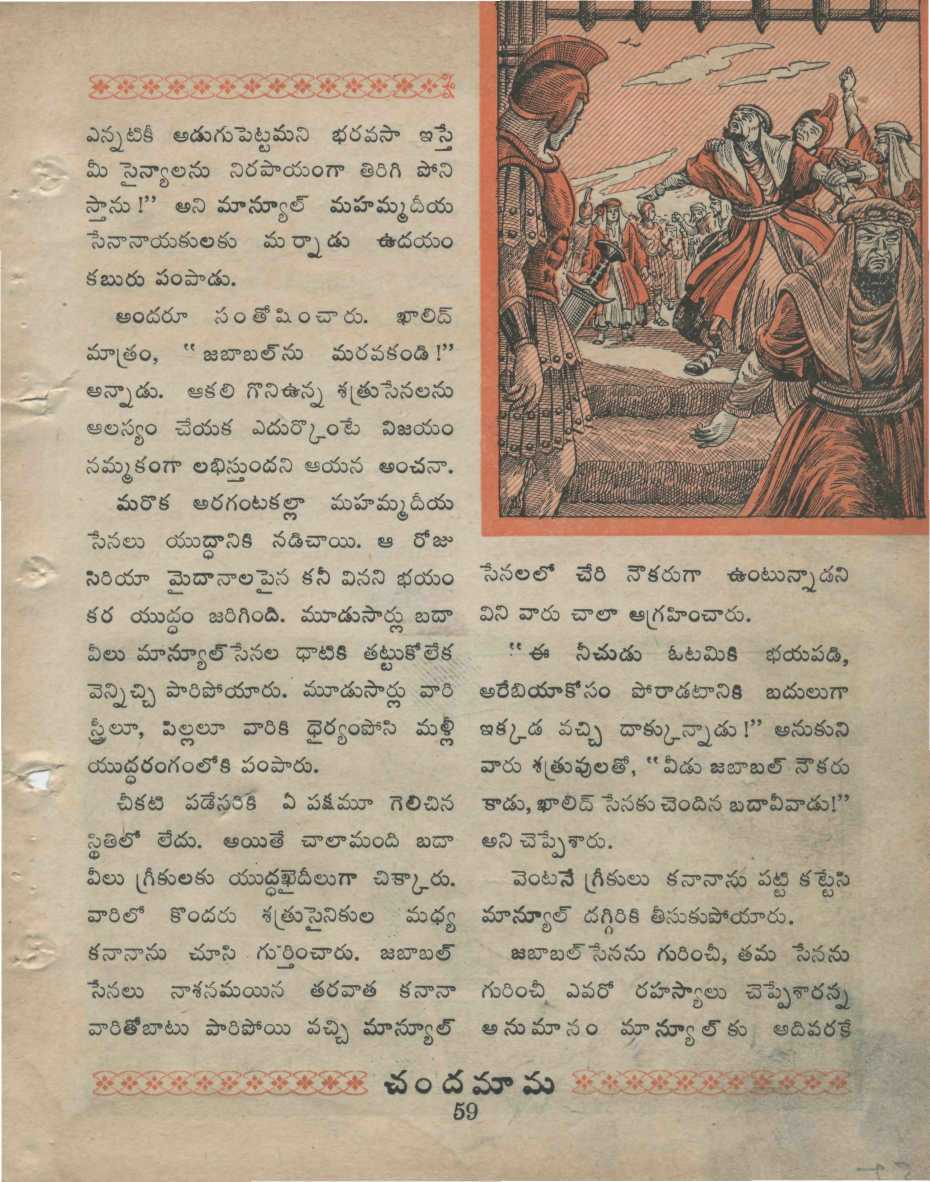 ఎన్నటికీ అడుగుపెట్టమని భరవసా ఇస్తే
మీ సైన్యాలను నిరపాయంగా తిరిగి పోని
స్తాను!” అని మాన్యూల్ మహమ్మదీయ
సేనానాయకులకు మర్నాడు ఉదయం
కబురు పంపాడు.
అందరూ సంతోషించారు. ఖాలిద్
మాత్రం, “జబాబల్‌ను మరవకండి!”
అన్నాడు. ఆకలి గొనిఉన్న శత్రుసేనలను
ఆలస్యం చేయక ఎదుర్కొంటే విజయం
నమ్మకంగా లభిస్తుందని ఆయన అంచనా.
మరొక అరగంటకల్లా మహమ్మదీయ
సేనలు యుద్ధానికి నడిచాయి. ఆ రోజు
సిరియా మైదానాలపైన కనీ వినని భయం
కర యుద్ధం జరిగింది. మూడుసార్లు బదా
వీలు మాన్యూల్ సేనల ధాటికి తట్టుకోలేక
వెన్నిచ్చి పారిపోయారు. మూడుసార్లు వారి
స్త్రీలూ, పిల్లలూ వారికి ధైర్యంపోసి మళ్లీ
యుద్ధరంగంలోకి పంపారు.
చీకటి పడేసరికి ఏ పక్షమూ గెలిచిన
స్థితిలో లేదు. అయితే చాలామంది బదా
వీలు గ్రీకులకు యుద్ధఖైదీలుగా చిక్కారు.
వారిలో కొందరు శత్రుసైనికుల మధ్య
కనానాను చూసి గుర్తించారు. జబాబల్
సేనలు నాశనమయిన తరవాత కనానా
వారితోబాటు పారిపోయి వచ్చి మాన్యూల్
సేనలలో చేరి నౌకరుగా ఉంటున్నాడని
విని వారు చాలా ఆగ్రహించారు.
“ఈ నీచుడు ఓటమికి భయపడి,
అరేబియాకోసం పోరాడటానికి బదులుగా
ఇక్కడ వచ్చి దాక్కున్నాడు!” అనుకుని
వారు శత్రువులతో, “వీడు జబాబల్ నౌకరు
కాడు, ఖాలిద్ సేనకు చెందిన బదావీవాడు!”
అని చెప్పేశారు.
వెంటనే గ్రీకులు కనానాను పట్టి కట్టేసి
మాన్యూల్ దగ్గిరికి తీసుకుపోయారు.
జబాబల్ సేనను గురించీ, తమ సేనను
గురించీ ఎవరో రహస్యాలు చెప్పేశారన్న
అనుమానం మాన్యూల్‌కు ఆదివరకే
చందమామ
59